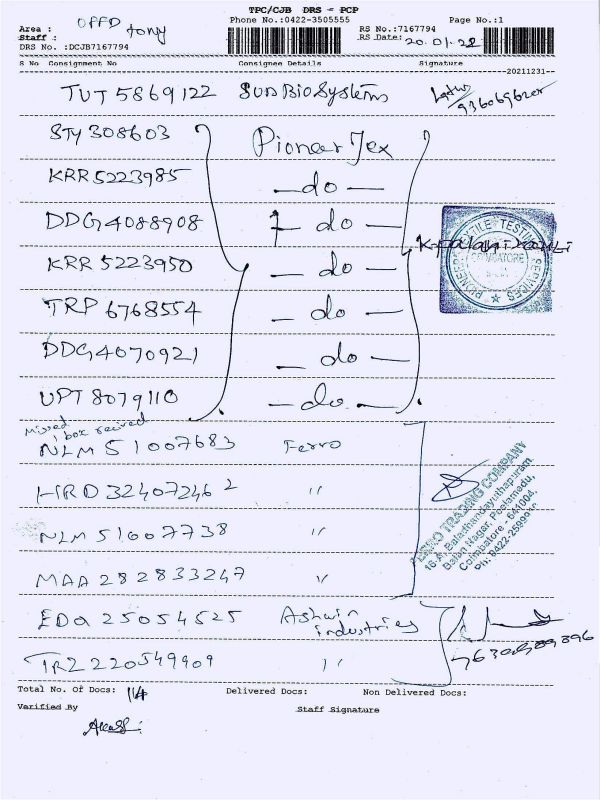 TPC/CJB DRS - PCP
Area : OPPD Phone No.:0422-3505555 Page No.:1
Staff : tony RS No.:7167794
DRS No. :DCJB7167794 RS Date: 20.01.22
S No Consignment No Consignee Details Signature
--20211231--
TUT 5869122 SunBioSystems
STY 308603 Pioneer Tex
KRR 5223985 - do -
DDG 4088908 - do -
KRR 5223950 - do -
TRP 6768554 - do -
DDG 4070921 - do -
UPT 8079110 - do -
PIONEER TEXTILE TESTING SERVICES
COIMBATORE
Missed 1 box recived
NLM 51007683 Ferro
HRD 324072462 "
NLM 51007738 "
MAA 282833247 "
FERRO TRADING COMPANY
16-A, Baladhandayuthapuram,
Balan Nagar, Peelamedu,
Coimbatore - 641004,
Ph: 0422-
EDQ 25054525 Ashwin industries
TRZ 220549909 "
Total No. Of Docs: 114 Delivered Docs: Non Delivered Docs:
Verified By Staff Signature